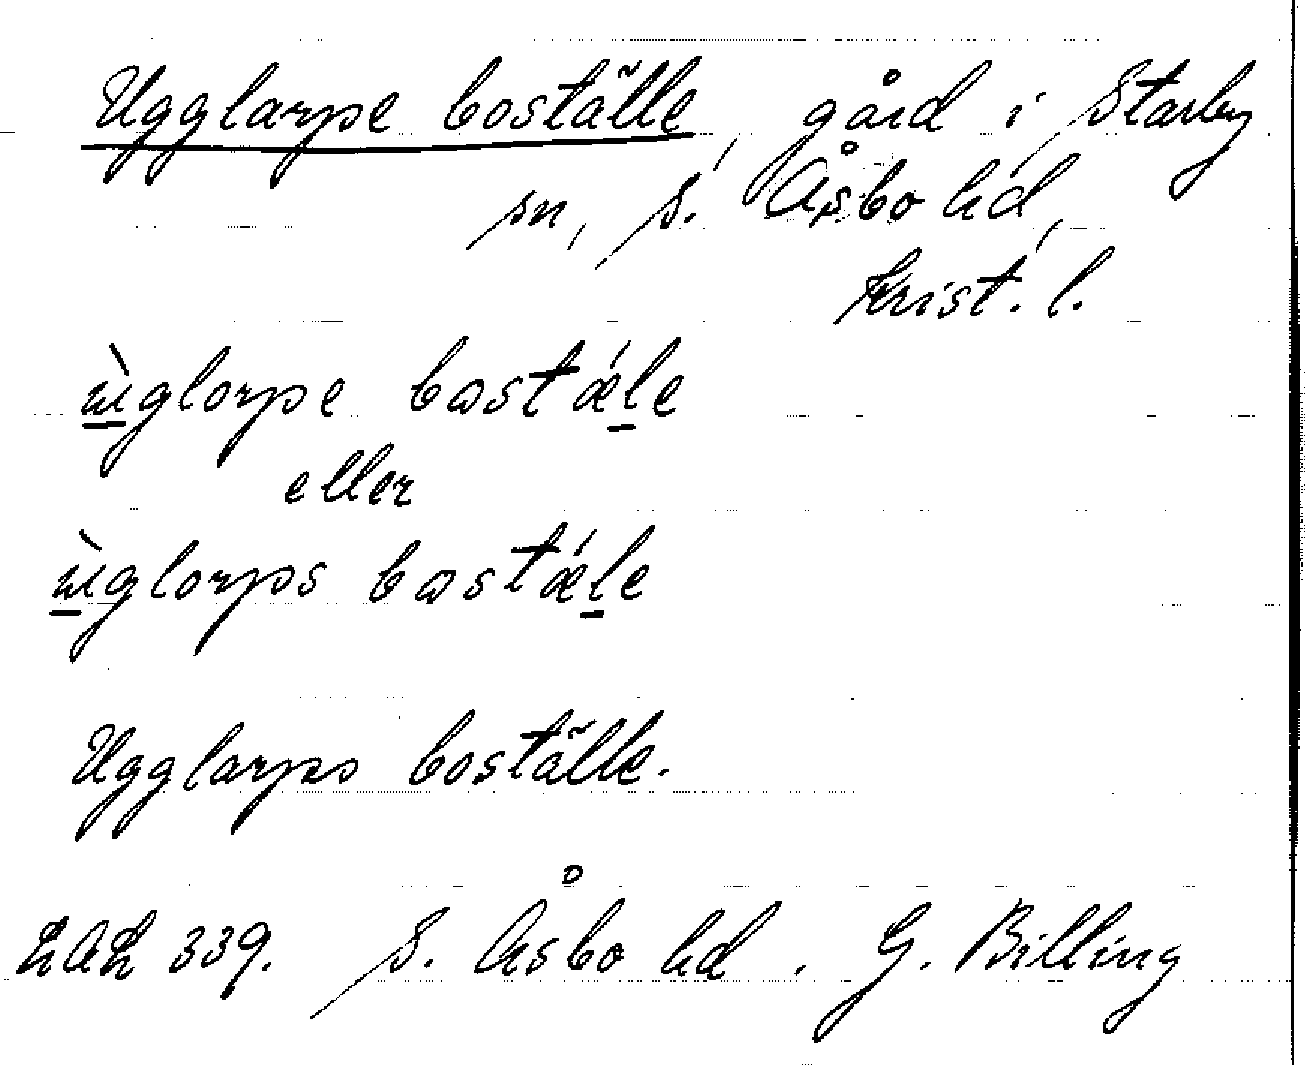 Ugglarpe boställe, gård i Starby
sn, S. Åsbo hd,
Krist. l.
ùglorpe bostǽle
eller
ùglorps bostǽle
Ugglarps boställe.
LAL 339. S. Åsbo hd. G. Billing